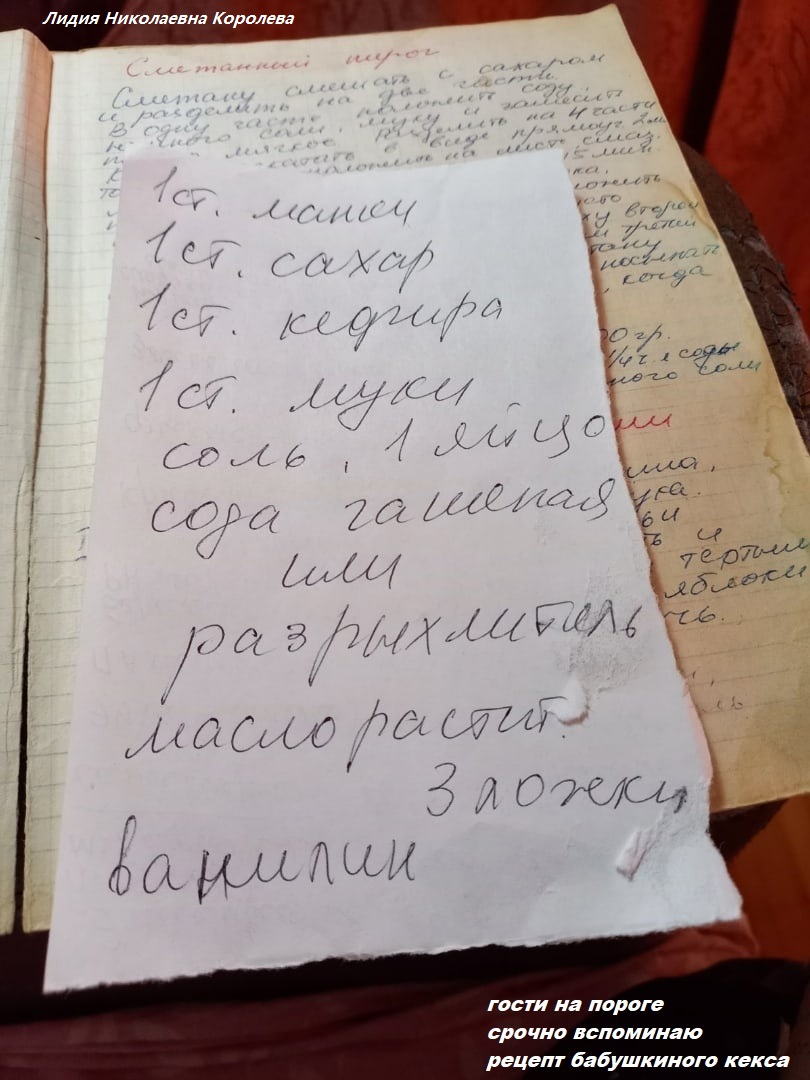 Лидия Николаевна Королева
Сметанный пирог
Сметану смешать с сахаром
и разделить на две части.
В одну часть положить соду,
немного соли, муки и замесить
мягкое разделить на 4 части
в виде прямоуг.
на лист
15 мин.
второй
третий
посыпать
когда
1ст. манки
1ст. сахар
1ст. кефира
1ст. муки
соль, 1 яйцо
сода гашеная
или
разрыхлитель
масло растит.
3 ложки
ванилин
гр.
1/4 ч. л соды
соли
и
тертыми
яблоки
гости на пороге
срочно вспоминаю
рецепт бабушкиного кекса